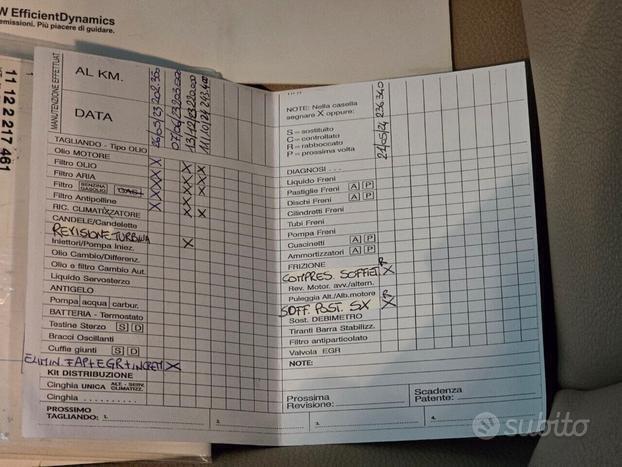 W EfficientDynamics
emissioni. Più piacere di guidare.
11 12 2 217 461
MANUTENZIONE EFFETTUAT.
AL KM.
DATA
26/05/23 202.350
07/06/23 203.000
13/12/23 220.000
11/10/24 243.400
TAGLIANDO - Tipo OLIO
Olio MOTORE
Filtro OLIO
Filtro ARIA
Filtro BENZINA GASOLIO GAS
Filtro Antipolline
RIC. CLIMATIZZATORE
CANDELE/Candelette
REVISIONE TURBINA
Iniettori/Pompa Iniez.
Olio Cambio/Differenz.
Olio e filtro Cambio Aut.
Liquido Servosterzo
ANTIGELO
Pompa acqua carbur.
BATTERIA - Termostato
Testine Sterzo S D
Bracci Oscillanti
Cuffie giunti S D
ELIMIN. FAP+EGR+
KIT DISTRIBUZIONE
Cinghia UNICA ALT. - SERV. CLIMATIZZ.
Cinghia . . . . . . . . . .
PROSSIMO
TAGLIANDO: 1. 2.
NOTE: Nella casella
segnare X oppure:
S = sostituito
C = controllato
R = rabboccato
P = prossima volta
21/05/24 236.340
DIAGNOSI . . .
Liquido Freni
Pastiglie Freni A P
Dischi Freni A P
Cilindretti Freni
Tubi Freni
Pompa Freni
Cuscinetti A P
Ammortizzatori A P
FRIZIONE
COMPRES. SOFFIET. R X
Rev. Motor. avv./altern.
Puleggia Alt./Alb.motore
SOFF. POST. SX R X
Sost. DEBIMETRO
Tiranti Barra Stabilizz.
Filtro antiparticolato
Valvola EGR
NOTE:
Prossima
Revisione:
Scadenza
Patente:
3. 4.
subito